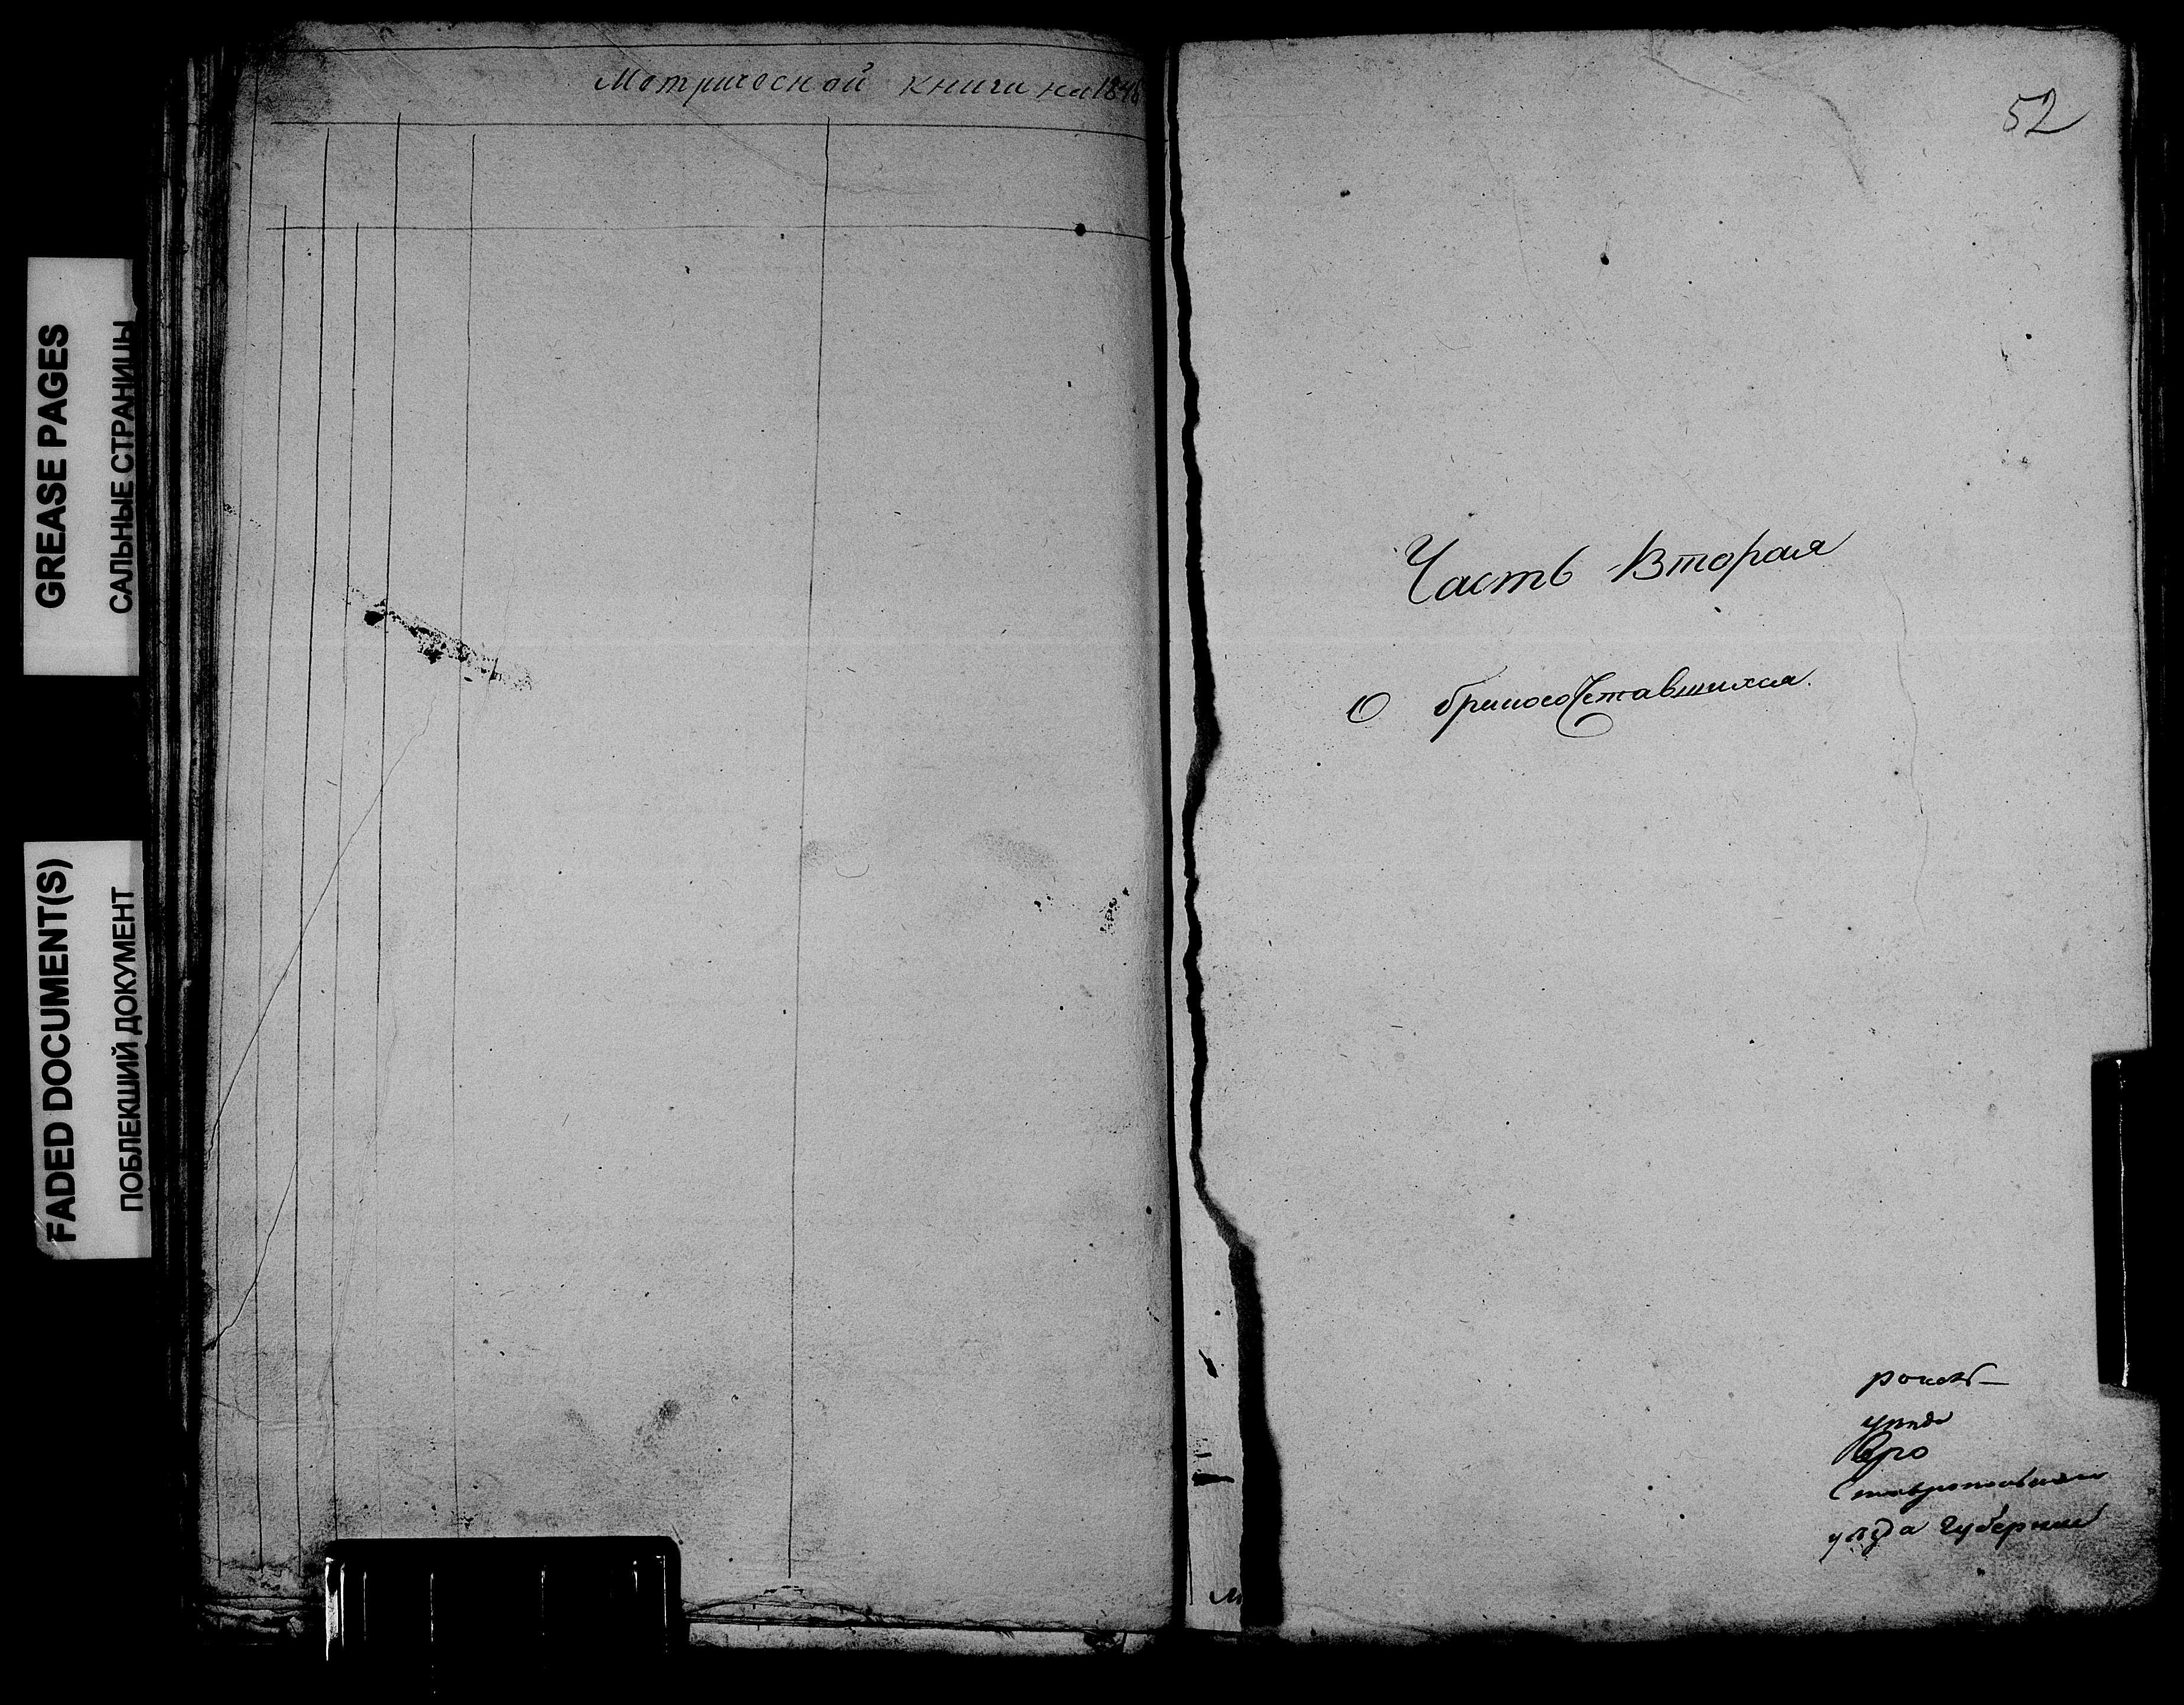 GREASE PAGES
САЛЬНЫЕ СТРАНИЦЫ
FADED DOCUMENT(S)
ПОБЛЕКШИЙ ДОКУМЕНТ
Метрической книги на 1846
52
Часть Вторая
О бракосочетавшихся.
уезда губернии